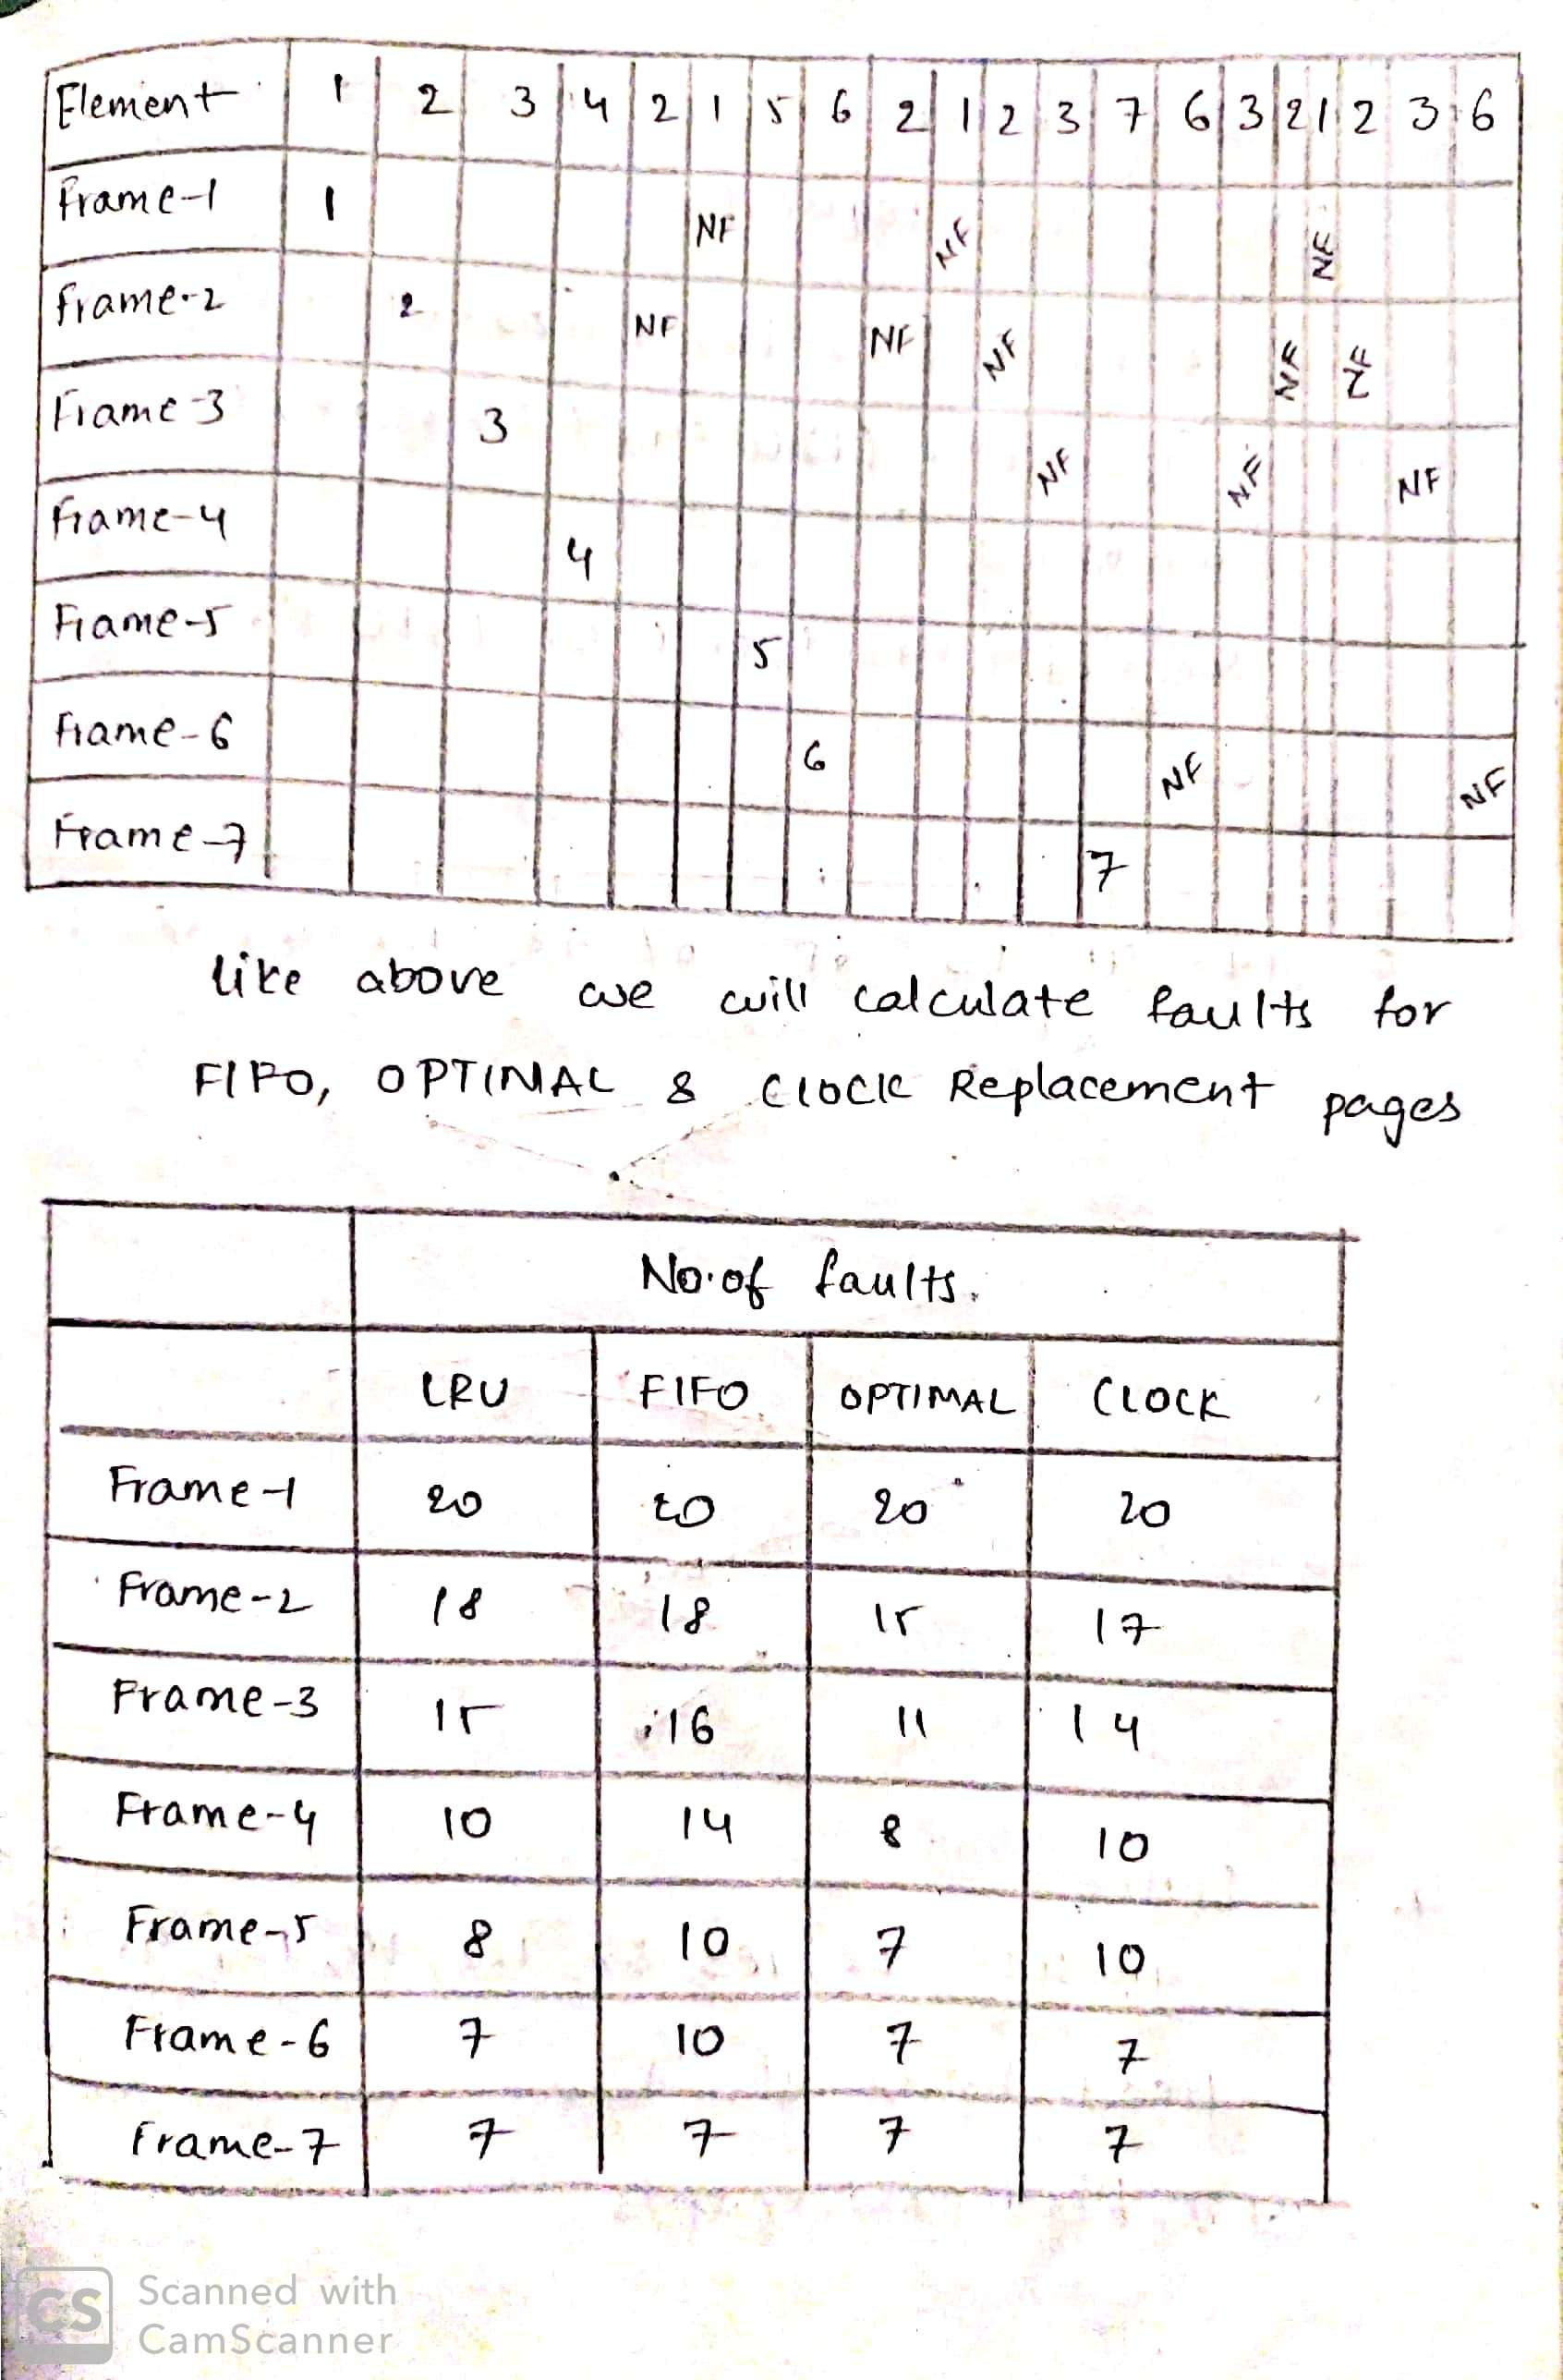 Element 1 2 3 4 2 1 5 6 2 1 2 3 7 6 3 2 1 2 3 6
Frame-1 1 NF NF NF
Frame-2 2 NF NF NF NF NF
Frame-3 3 NF NF NF
Frame-4 4
Frame-5 5
Frame-6 6 NF NF
Frame-7 7
like above we will calculate faults for
FIFO, OPTIMAL & Clock Replacement pages
No. of faults.
LRU FIFO OPTIMAL CLOCK
Frame-1 20 20 20 20
Frame-2 18 18 15 17
Frame-3 15 16 11 14
Frame-4 10 14 8 10
Frame-5 8 10 7 10
Frame-6 7 10 7 7
Frame-7 7 7 7 7
CS Scanned with
CamScanner